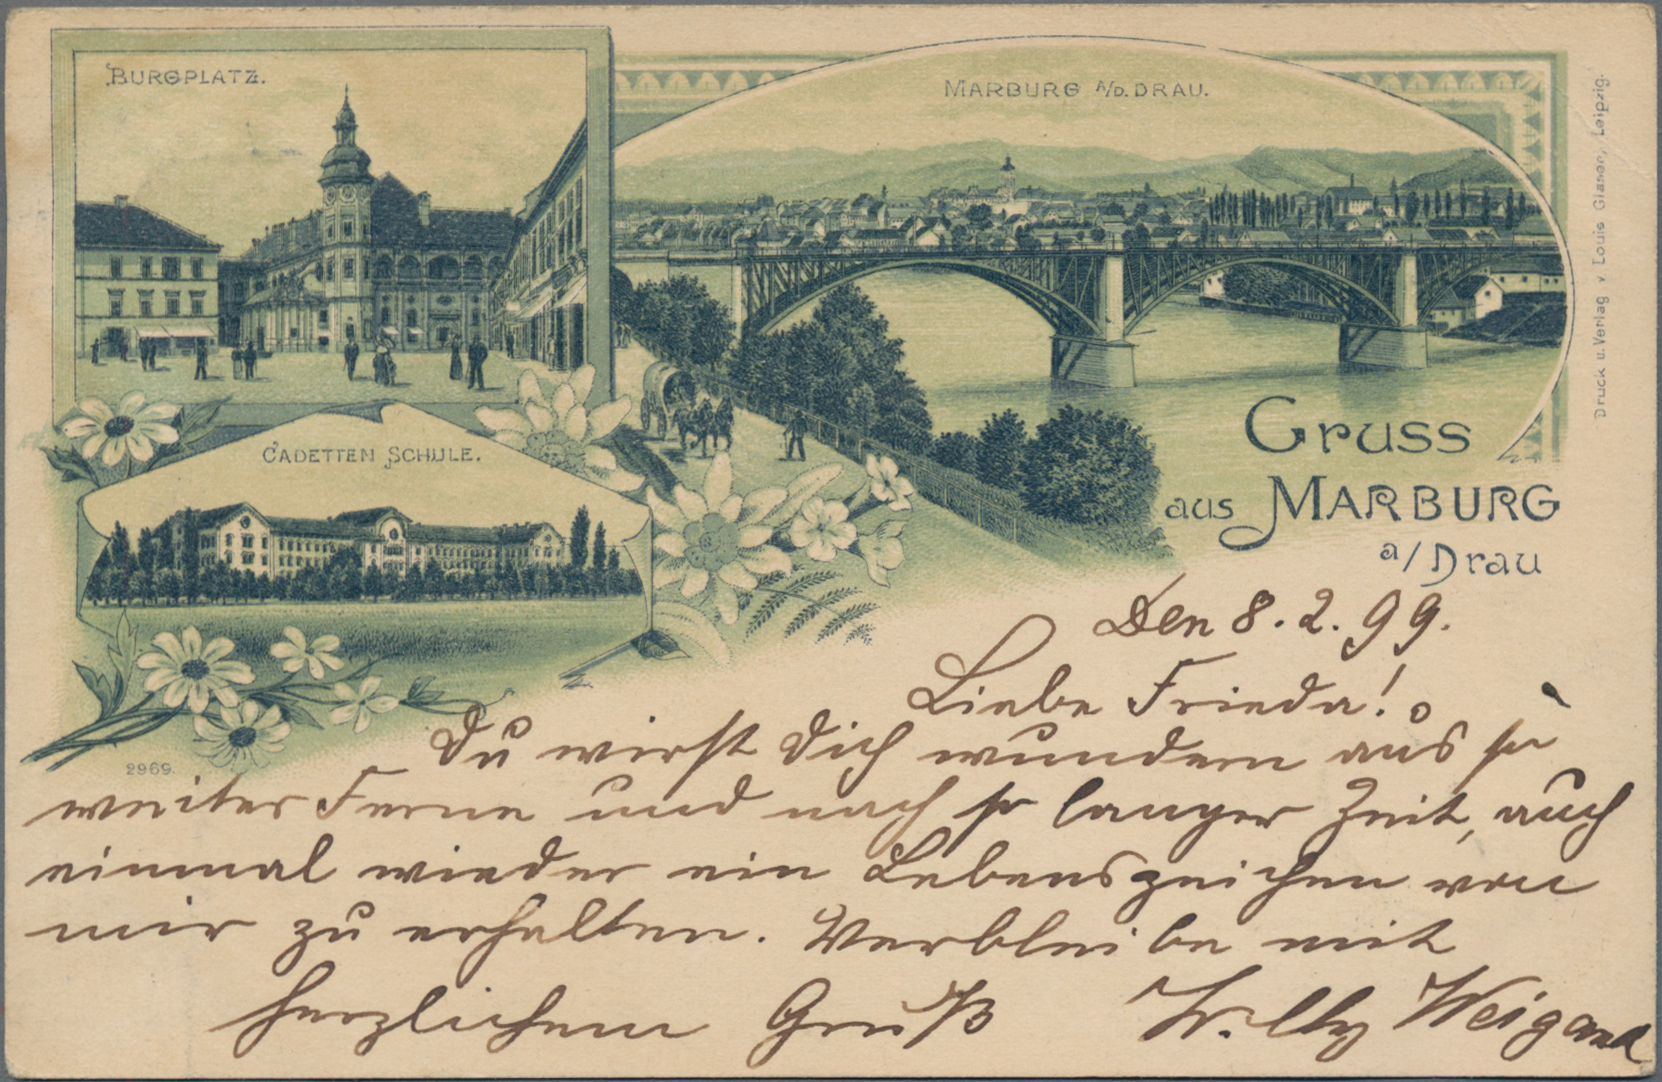 BURGPLATZ.
MARBURG A/D. DRAU.
CADETTEN SCHULE.
Gruss
aus MARBURG
a/Drau
Druck u. Verlag v Louis Glaser, Leipzig.
2969.
Den 8. 2. 99.
Liebe Frieda!
Du wirst Dich wundern aus so
weiter Ferne und nach so langer Zeit, auch
einmal wieder ein Lebenszeichen von
mir zu erhalten. Verbleibe mit
herzlichem Gruß Willy Weigand